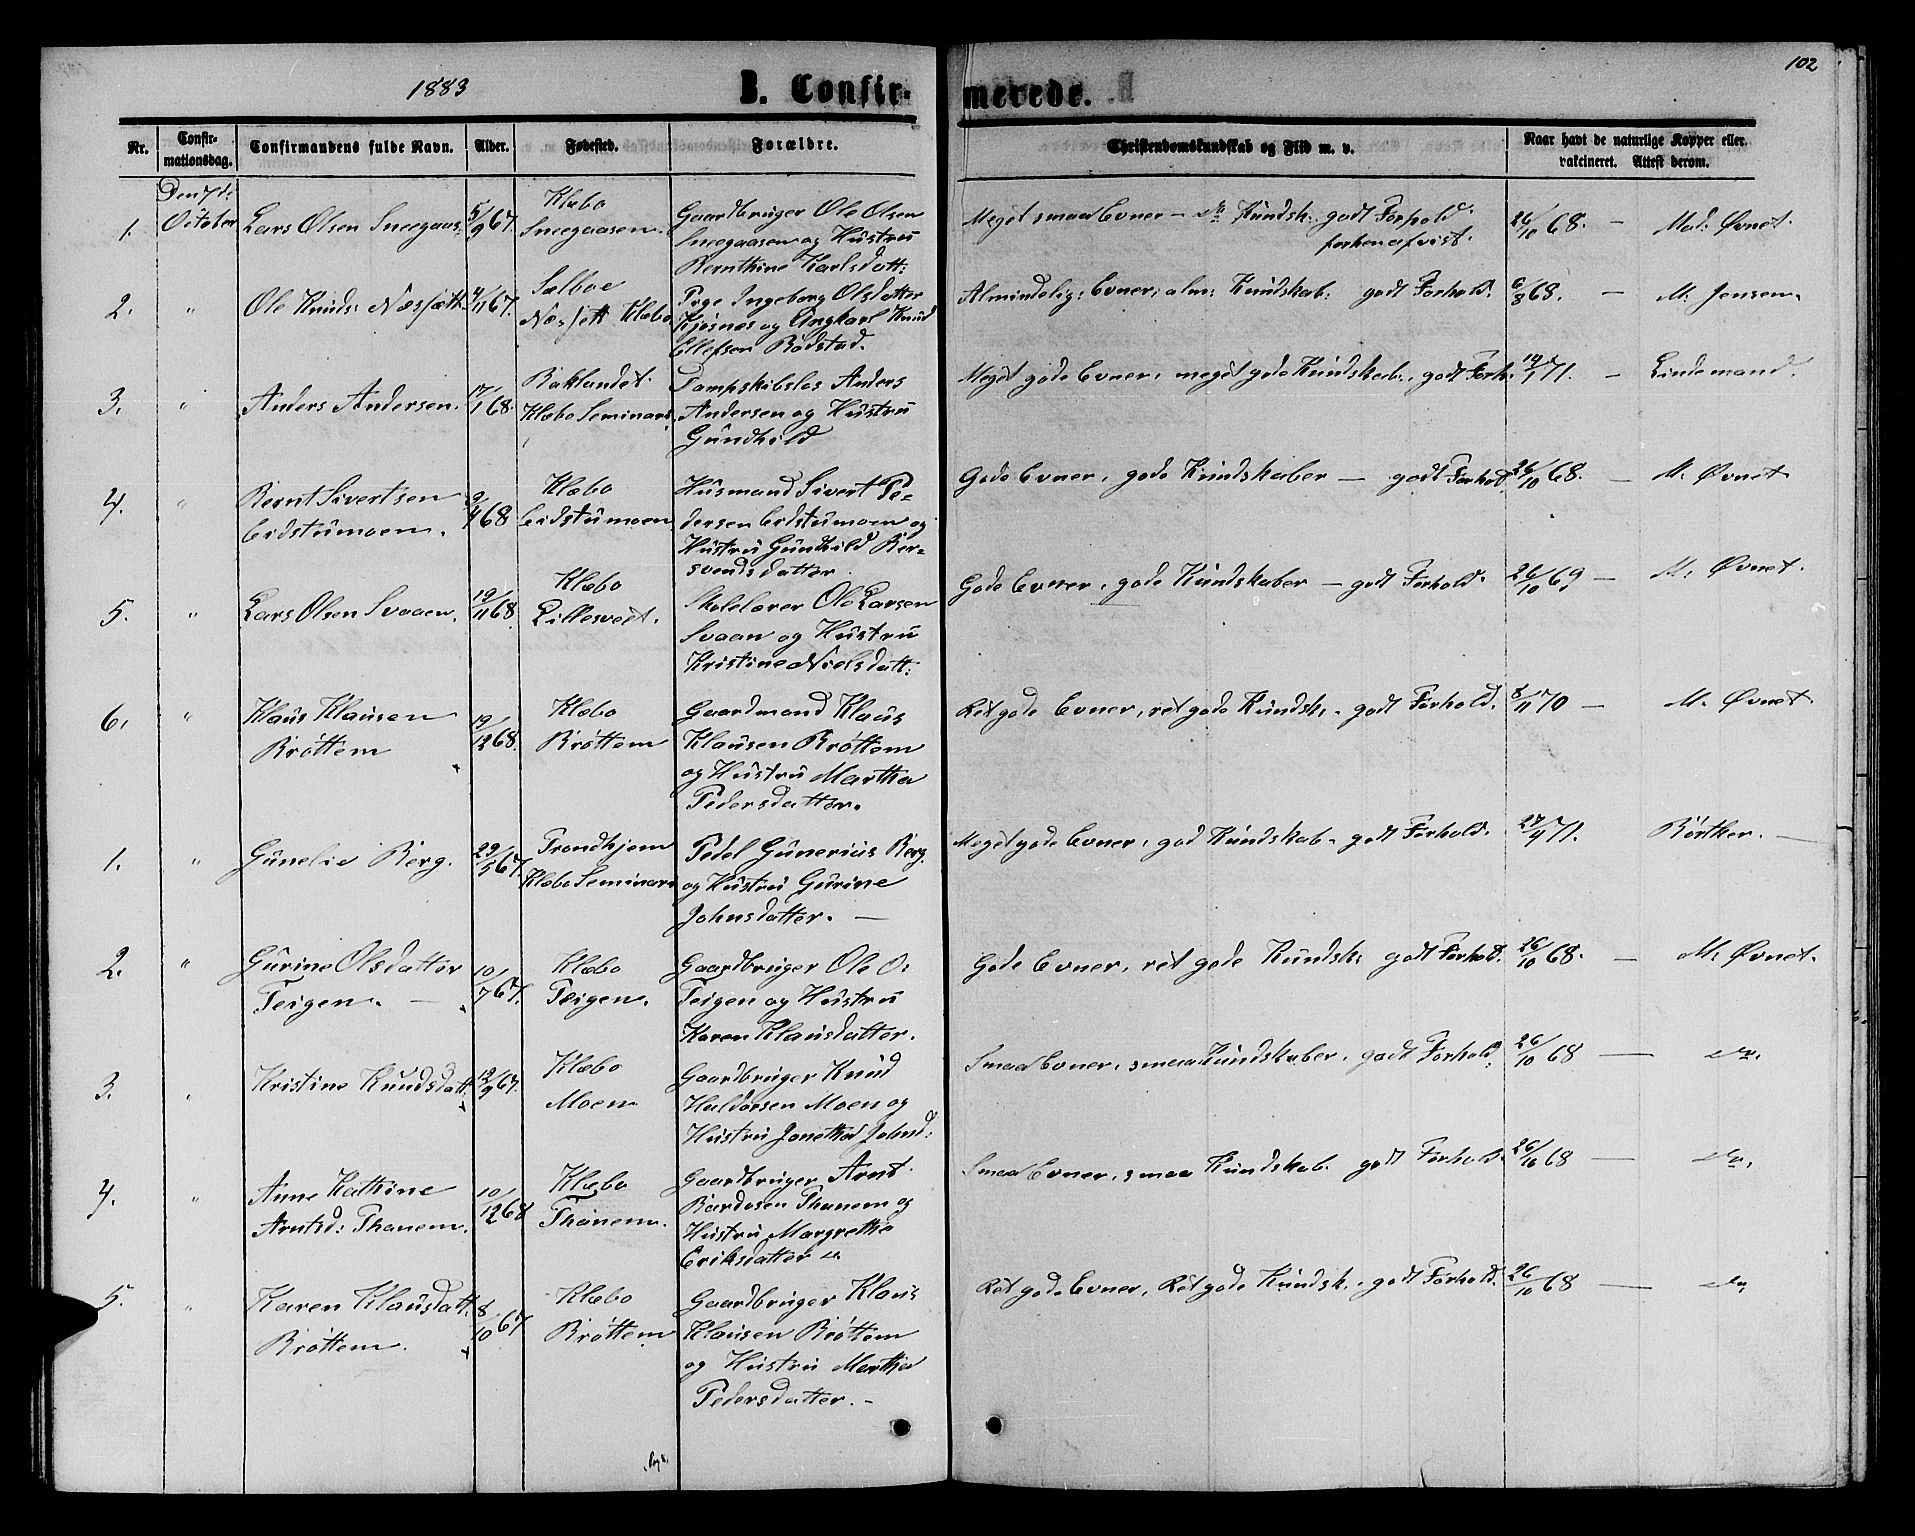 102
1883
B. Confir- merede.
Nr. Confir-mationsdag. Confirmandens fulde Navn. Alder. Fødested. Forældre. Christendomskundskab og Flid m. v. Naar havt de naturlige Kopper eller vakcineret. Attest derom.
Den 7de
October
1. Lars Olsen Sneegaas. 5/9 67. Klæbo
Sneegaasen.
Gaardbruger Ole Olsen
Sneegaasen og Hustru
Bernthine Karlsdatt:
Meget smaa Evner – do Kundsk. godt Forhold.
forhen afvist.
26/10 68. – Mad: Øvnet.
2. " Ole Knuds: Næssæth. 4/11 67. Sælboe
Næssett Klæbo
Pige Ingeborg Olsdatter
Kjøsnæs og Ungkarl Knud
Ellefsen Rødstad.
Almindelig: Evner; alm: Kundskab: godt Forhold. 6/8 68. – M. Jensen.
3. " Anders Andersen. 17/1 68. Baklandet.
Klæbo Seminari
Dampskibslos Anders
Andersen og Hustru
Gundhild
Meget gode Evner, meget gode Kundskab., godt Forh. 14/1 71. – Lindemand.
4. " Bernt Sivertsen
Eidstumoen.
9/4 68 Klæbo
Eidstumoen
Husmand Sivert Pe-
dersen Eidstumoen og
Hustru Gunhild Ber-
svendsdatter
Gode Evner, gode Kundskaber – godt Forhold. 26/10 68. – M. Øvnet
5. " Lars Olsen Svaaen. 19/11 68. Klæbo
Lillesveet.
Skolelærer Ole Larsen
Svaan og Hustru
Kristine Nielsdatt:
Gode Evner, gode Kundskaber – godt Forhold. 26/10 69 – M. Øvnet.
6. " Klaus Klausen
Brøttem
19/12 68. Klæbo
Brøttem
Gaardmand Klaus
Klausen Brøttem
og Hustru Martha
Pedersdatter.
Ret gode Evner, ret gode Kundsk. – godt Forhold. 8/11 70 – M. Øvnet.
1. " Gunelie Berg. 29/5 67. Trondhjem
Klæbo Seminari
Pedel Gunerius Berg
og Hustru Gurine
Johnsdatter. –
Meget gode Evner, god Kundskab – godt Forhold. 27/4 71. –
2. " Gurine Olsdatter
Teigen. –
10/7 67. Klæbo
Teigen.
Gaardbruger Ole O:
Teigen og Hustru
Karen Klausdatter.
Gode Evner, ret gode Kundsk: godt Forhold. 26/10 68. – M. Øvnet.
3. " Kristine Knudsdatt. 12/9 67. Klæbo
Moen
Gaardbruger Knud
Haldorsen Moen og
Hustru Janetha Johnd:
Smaa Evner, smaa Kundskaber, godt Forhold. 26/10 68 – do.
4. " Anne Kathrine
Arntsd: Thanem.
10/12 68 Klæbo
Thanem.
Gaardbruger Arnt
Bardosen Thanem og
Hustru Margrethe
Eriksdatter
Smaa Evner, smaa Kundskab. godt Forhold. 26/10 68 – do.
5. " Karen Klausdatt.
Brøttem.
8/10 67 Klæbo
Brøttem
Gaardbruger Klaus
Klausen Brøttem
og Hustru Martha
Pedersdatter. –
Ret gode Evner, Ret gode Kundsk., godt Forhold. 26/10 68 – do